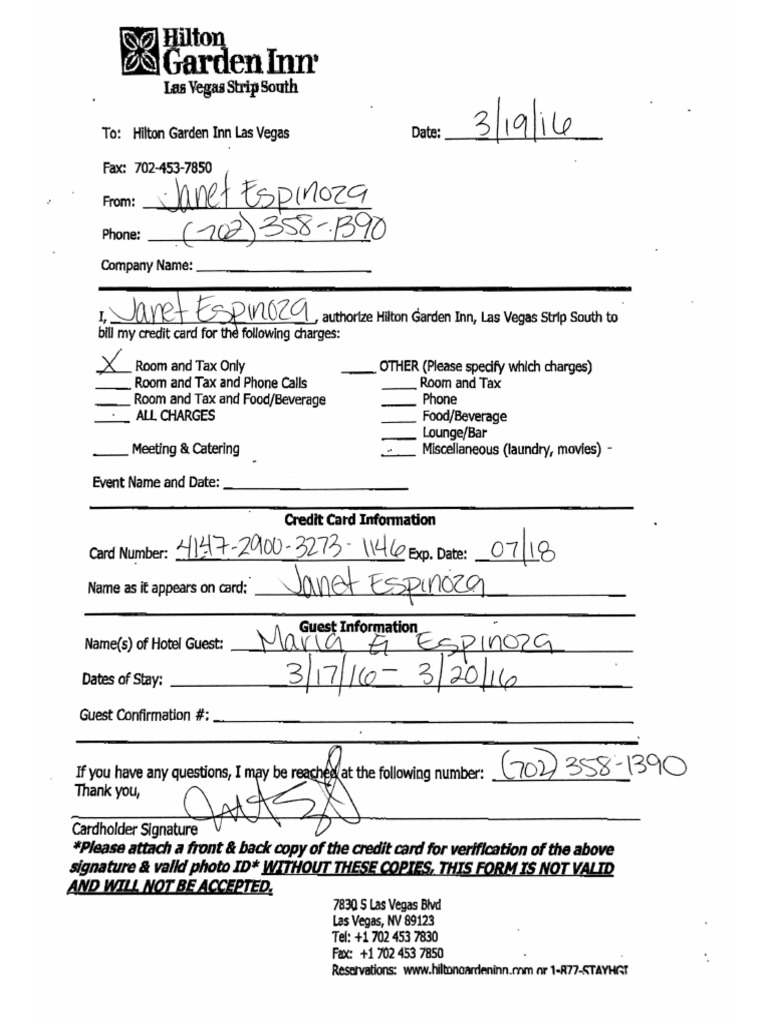 Hilton
Garden Inn
Las Vegas Strip South
To: Hilton Garden Inn Las Vegas Date: 3/19/16
Fax: 702-453-7850
From: Janet Espinoza
Phone: (702) 358-1390
Company Name:
I, Janet Espinoza, authorize Hilton Garden Inn, Las Vegas Strip South to
bill my credit card for the following charges:
X Room and Tax Only OTHER (Please specify which charges)
Room and Tax and Phone Calls Room and Tax
Room and Tax and Food/Beverage Phone
ALL CHARGES Food/Beverage
Lounge/Bar
Meeting & Catering Miscellaneous (laundry, movies)
Event Name and Date:
Credit Card Information
Card Number: [card number withheld] Exp. Date: [withheld]
Name as it appears on card: Janet Espinoza
Guest Information
Name(s) of Hotel Guest: Maria G Espinoza
Dates of Stay: 3/17/16 - 3/20/16
Guest Confirmation #:
If you have any questions, I may be reached at the following number: (702) 358-1390
Thank you,
Cardholder Signature
*Please attach a front & back copy of the credit card for verification of the above
signature & valid photo ID* WITHOUT THESE COPIES, THIS FORM IS NOT VALID
AND WILL NOT BE ACCEPTED.
7830 S Las Vegas Blvd
Las Vegas, NV 89123
Tel: +1 702 453 7830
Fax: +1 702 453 7850
Reservations: www.hiltongardeninn.com or 1-877-STAYHGI